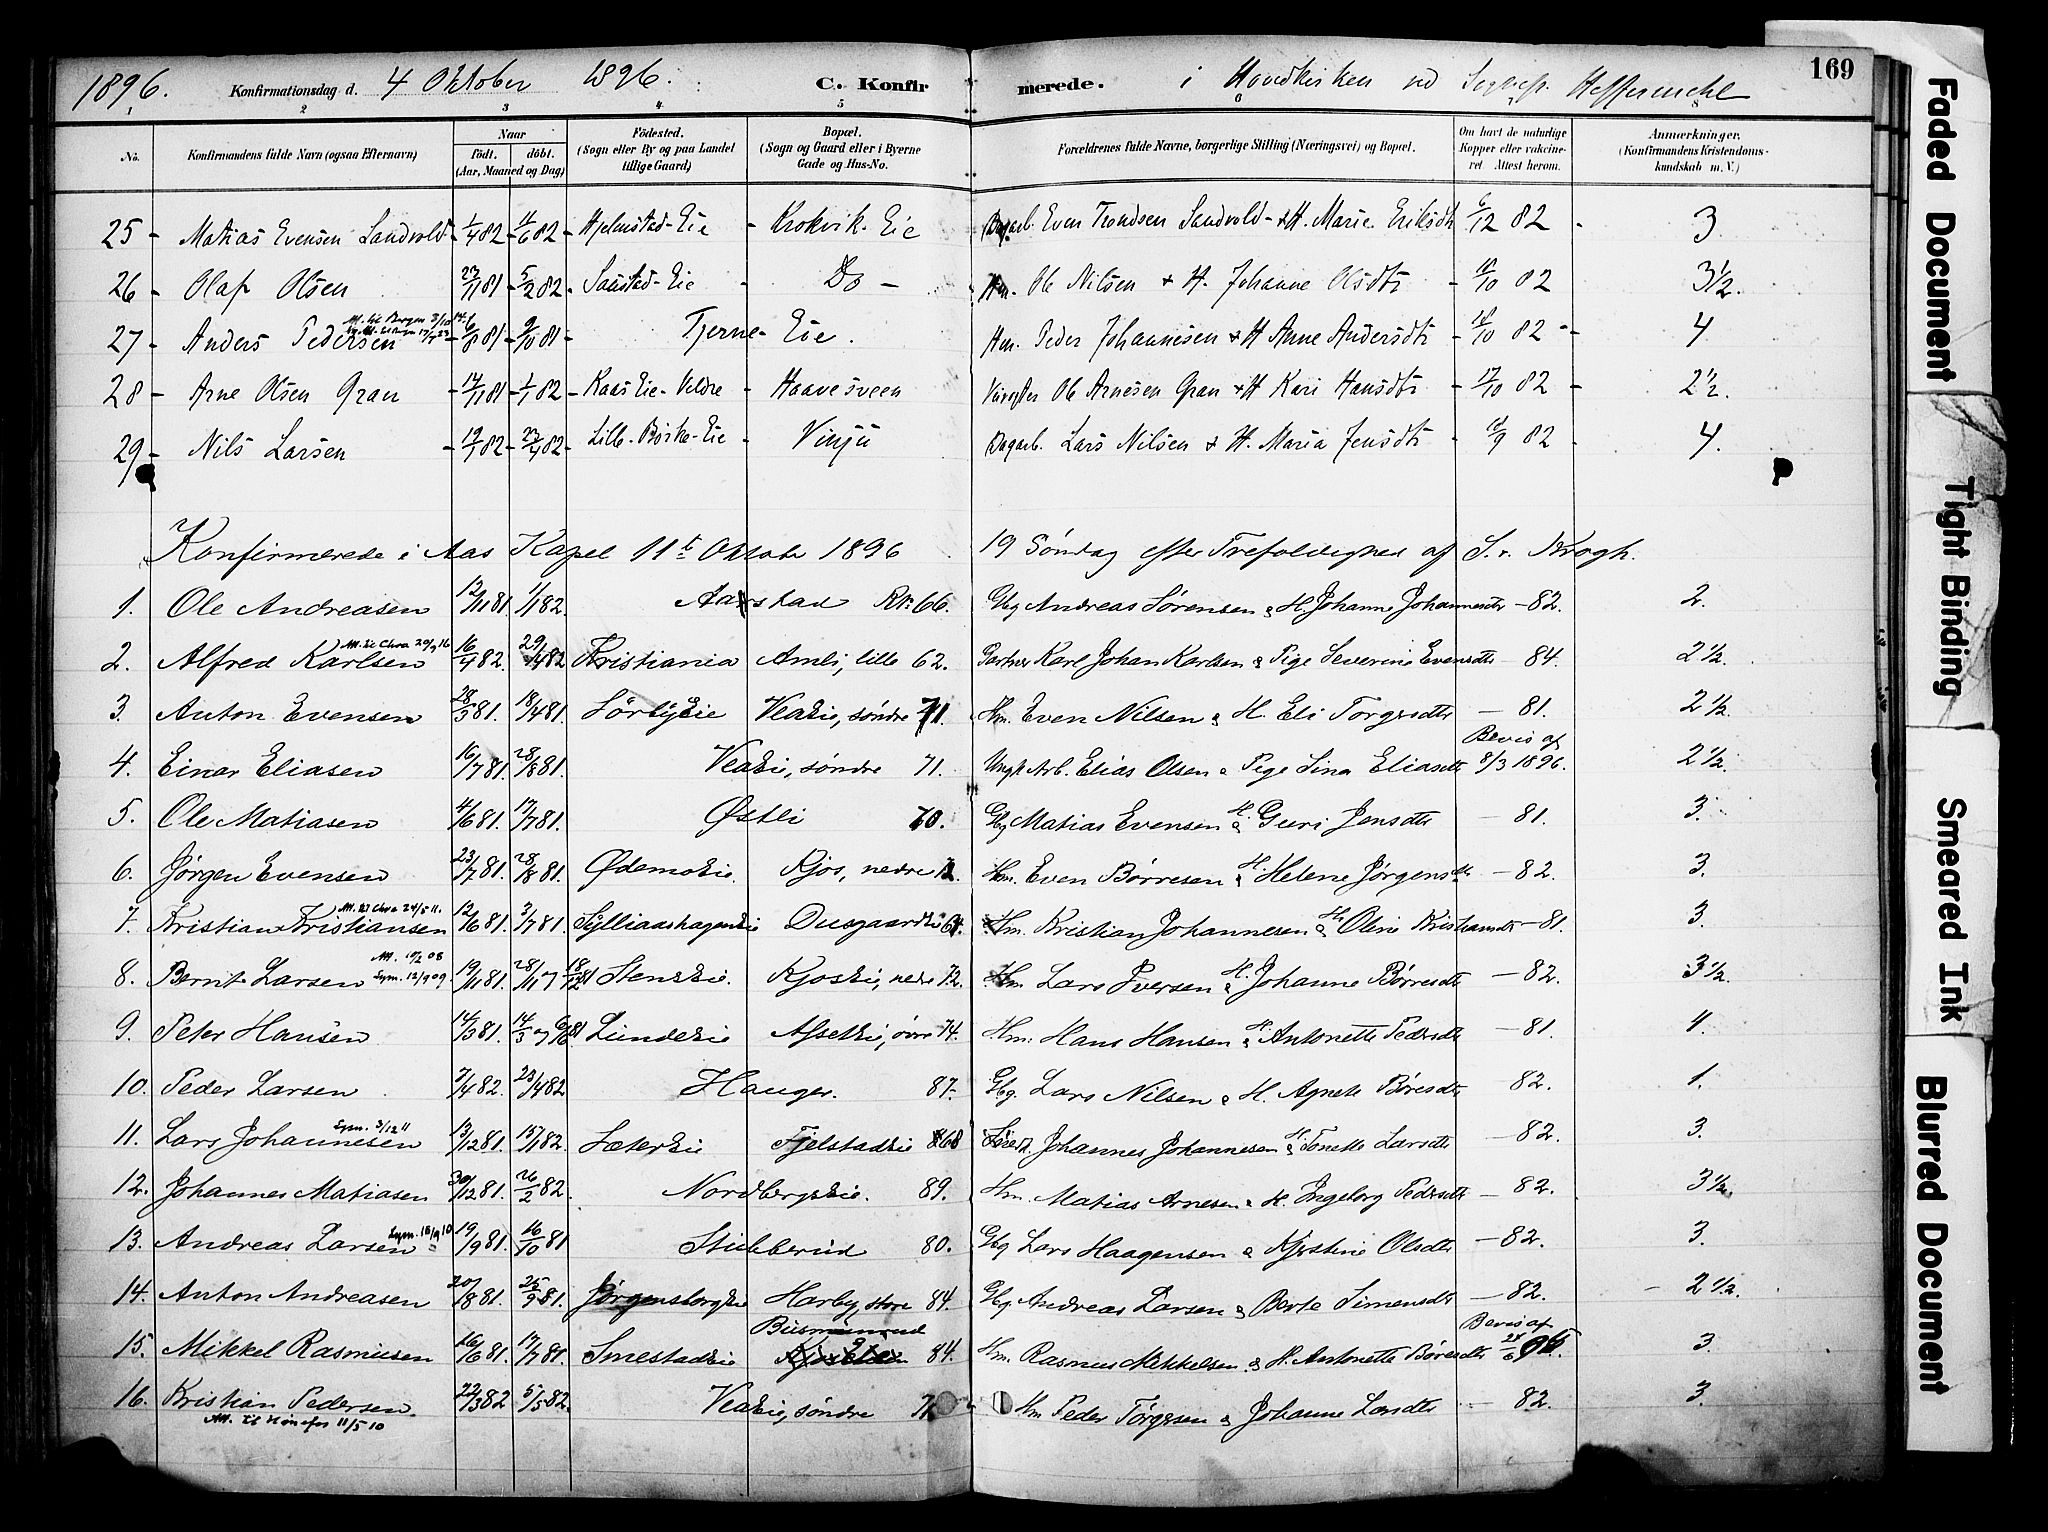 1896. Konfirmationsdag d. 4 Oktober 1896. C. Konfirmerede. i Hovedkirken ved Sognepr. 169
1 2 3 4 5 6 7 8
No. Konfirmandens fulde Navn (ogsaa Efternavn) Naar født. døbt. (Aar, Maaned og Dag) Fødested. (Sogn eller By og paa Landet tillige Gaard) Bopæl. (Sogn og Gaard eller i Byerne Gade og Hus-No. Forældrenes fulde Navne, borgerlige Stilling (Næringsvei) og Bopæl. Om havt de naturlige Kopper eller vakcineret. Attest herom. Anmærkninger. (Konfirmandens Kristendomskundskab m. V.)
25 - Matias Evensen Sandvold - 1/4 82 - 11/6 82 - Hjelmstad-Eie - Krokvik-Eie Dagarb. Even Trondsen Sandvold - & H. Marie Eriksdtr 6/12 82 - 3
26 - Olaf Olsen 23/11 81 - 5/2 82 - Saastad-Eie Do - Hm. Ole Nilsen & H. Johanne Olsdtr - 18/10 82 3½.
27 - Anders Pedersen 16/8 81 - 9/10 81 - Tjerne-Eie. Hm. Peder Johannesen & H Anne Andersdtr - 18/10 82 - 4
28 - Arne Olsen Gran - 14/11 81 - 1/1 82 - Kaas Eie - Veldre - Haavesveen Ole Arnesen Gran & H Kari Hansdtr - 17/10 82 - 2½.
29 - Nils Larsen - 19/1 82 - 23/4 82 - Lille-Børke-Eie - Vinju Dagarb. Lars Nilsen & H. Maria Jensdtr - 18/9 82 - 4.
Konfirmerede i Aas Kapel 11te Oktobr 1896 19 Søndag efter Trefoldighed af S. v. Krogh.
1. Ole Andreasen 12/11 81. 1/1 82. Aarstad 66. Gbg Andreas Sørensen & H. Johanne Johannesdtr - 82. 2.
2. Alfred Karlsen Att. til Chra 20/9 16 16/4 82. 29/4 82 Kristiania Amli, lille 62. Gartner Karl Johan Karlsen & Pige Severine Evensdtr - 84. 2½.
3. Anton Evensen 28/3 81. 18/4 81. Sørbyeie Veaeie, søndre 71. Hm. Even Nilsen & H. Eli Torgersdtr - 81. 2½.
4. Einar Eliasen 16/7 81. 28/8 81. Veaeie, søndre 71. Ungk. Arb. Elias Olsen & Pige Lina Eliasdtr Bevis af 8/3 1896. 2½.
5. Ole Matiasen 4/6 81. 17/7 81. Østli 70. Gbg Matias Evensen & H. Guri Jensdtr - 81. 3.
6. Jørgen Evensen 23/7 81. 28/8 81. Ødemoeie. Kjos, nedre 72. Hm. Even Børresen & H. Helene Jørgensdtr - 82. 3.
7. Kristian Kristiansen Att. til Chra 24/5 11. 12/6 81. 3/7 81. Dusgaardeie Hm. Kristian Johannesen & H. Oline Kristiansdtr - 81. 3.
8. Bernt Larsen Att. 19/2 08 Sym. 12/9 09 19/11 81. 28/11 & 18/12 81 Stenseie. Kjoseie, nedre 72. Hm Lars Iversen & H. Johanne Børresdtr - 82. 3½.
9. Peter Hansen 14/3 81. 14/3 & 6/6 81 Lundeeie Afseteie, øvre 74. Hm. Hans Hansen & H. Antonette Pedersdtr - 81. 4.
10. Peder Larsen 7/4 82. 23/4 82 Hauger. 87. Gbg. Lars Nilsen & H. Agnete Børesdtr 82. 1.
11. Lars Johannesen Sym. 3/12 11 13/12 81. 15/1 82. Sætereie Fjelstadeie 68 Johannes Johannesen & H. Tonette Larsdtr - 82. 3.
12. Johannes Matiasen 30/12 81. 26/2 82. Nordbergseie. 89. Hm. Matias Arnesen & H. Ingeborg Pedersdtr - 82. 3½.
13. Andreas Larsen Sym. 18/9 10 19/9 81. 16/10 81 Stubberud 80. Gbg Lars Haagensen & Kjerstine Olsdtr - 82. 3.
14. Anton Andreasen 20/8 81. 25/9 81. Jørgensborgeie Harby, store 84. Gbg. Andreas Larsen & Berte Simensdtr - 82. - 2½.
15. Mikkel Rasmusen 26/6 81. 17/7 81. Smestadeie Busmunrud 84. Hm. Rasmus Mikkelsen & H. Antonette Børesdtr Bevis af 3.
16. Kristian Pedersen. Att. til Hønefos 11/5 10 22/3 82 5/5 82. Veaeie, søndre Hm Peder Torgersen & Johanne Larsdtr - 82. 3.
Faded Document
Tight Binding
Smeared Ink
Blurred Document